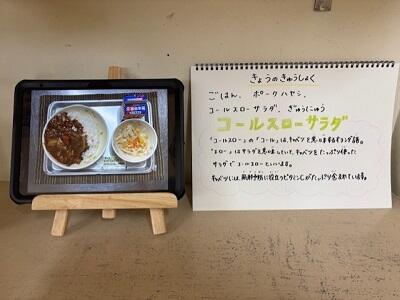 きょうのきゅうしょく
ごはん、ポークハヤシ、
コールスローサラダ、ぎゅうにゅう
コールスローサラダ
「コールスロー」の「コール」は、キャベツを意味するオランダ語。
「スロー」はサラダを意味していて、キャベツをたっぷり使った
サラダでコールスローといいます。
キャベツには、風邪予防に役立つビタミンCがたっぷり含まれています。